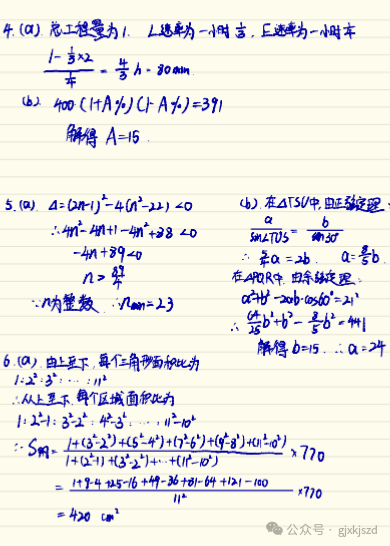 4.(a) 总工程量为1. L速率为一小时 1/3, E速率为一小时 1/4
(1-1/3×2)/(1/4) = 4/3 h = 80 min.
(b). 400(1+A%)(1-A%)=391
解得 A=15.
5.(a) Δ=(2n-1)²-4(n²-22)<0
∴4n²-4n+1-4n²+88<0
-4n+89<0
n>89/4
∵n为整数 ∴nmin=23
(b). 在ΔTSU中,由正弦定理,
a/sin∠TUS = b/sin30°
∴ 5/4 a = 2b. a=8/5 b.
在ΔPQR中 由余弦定理:
a²+b²-2ab·cos60°=21²
∴ 64/25 b²+b²-8/5 b²=441
解得b=15. ∴a=24
6.(a) 由上至下,每个三角形面积比为
1:2²:3²:……:11²
∴从上至下,每个区域面积比为
1:2²-1:3²-2²:4²-3²:……:11²-10²
∴S阴=(1+(3²-2²)+(5²-4²)+(7²-6²)+(9²-8²)+(11²-10²))/(1+(2²-1)+(3²-2²)+…+(11²-10²)) ×770
=(1+9-4+25-16+49-36+81-64+121-100)/11² ×770
=420 cm²
公众号 · gjxkjszd